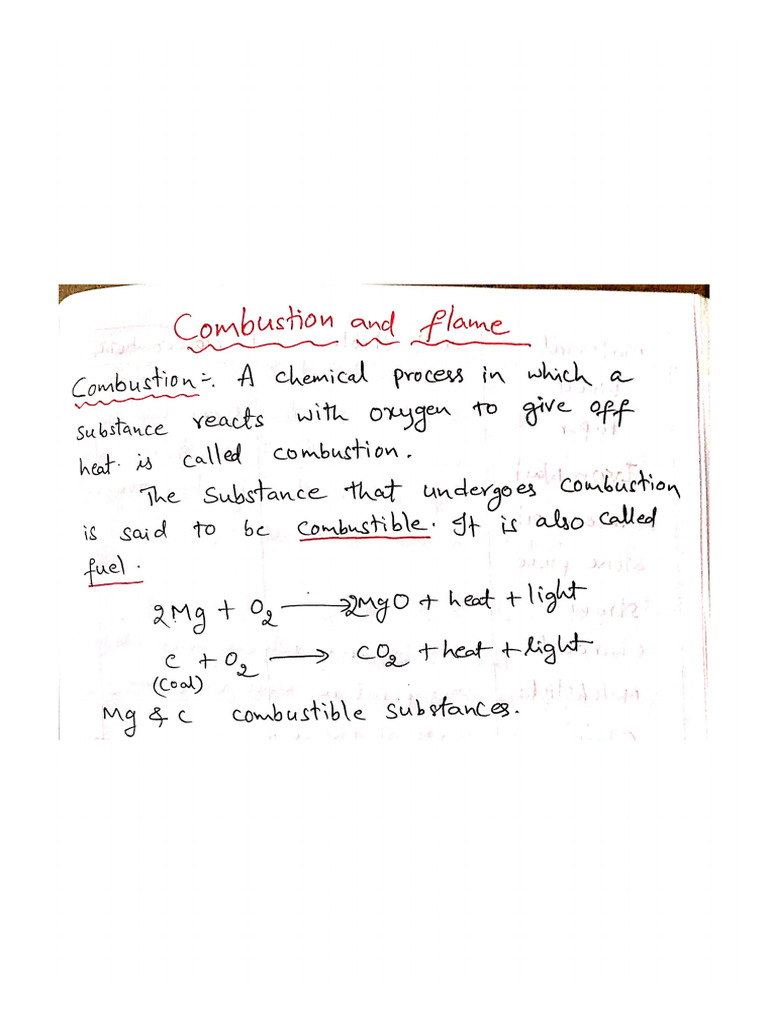 Combustion and flame
Combustion:- A chemical process in which a
substance reacts with oxygen to give off
heat is called combustion.
The substance that undergoes combustion
is said to be combustible. It is also called
fuel.
2Mg + O₂ → 2MgO + heat + light
C + O₂ → CO₂ + heat + light
(Coal)
Mg & C combustible substances.